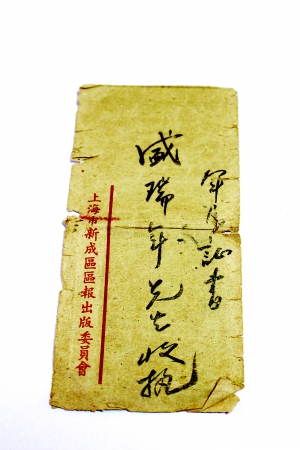 証書
盛瑞年先生收执
上海市新成區區報出版委員會